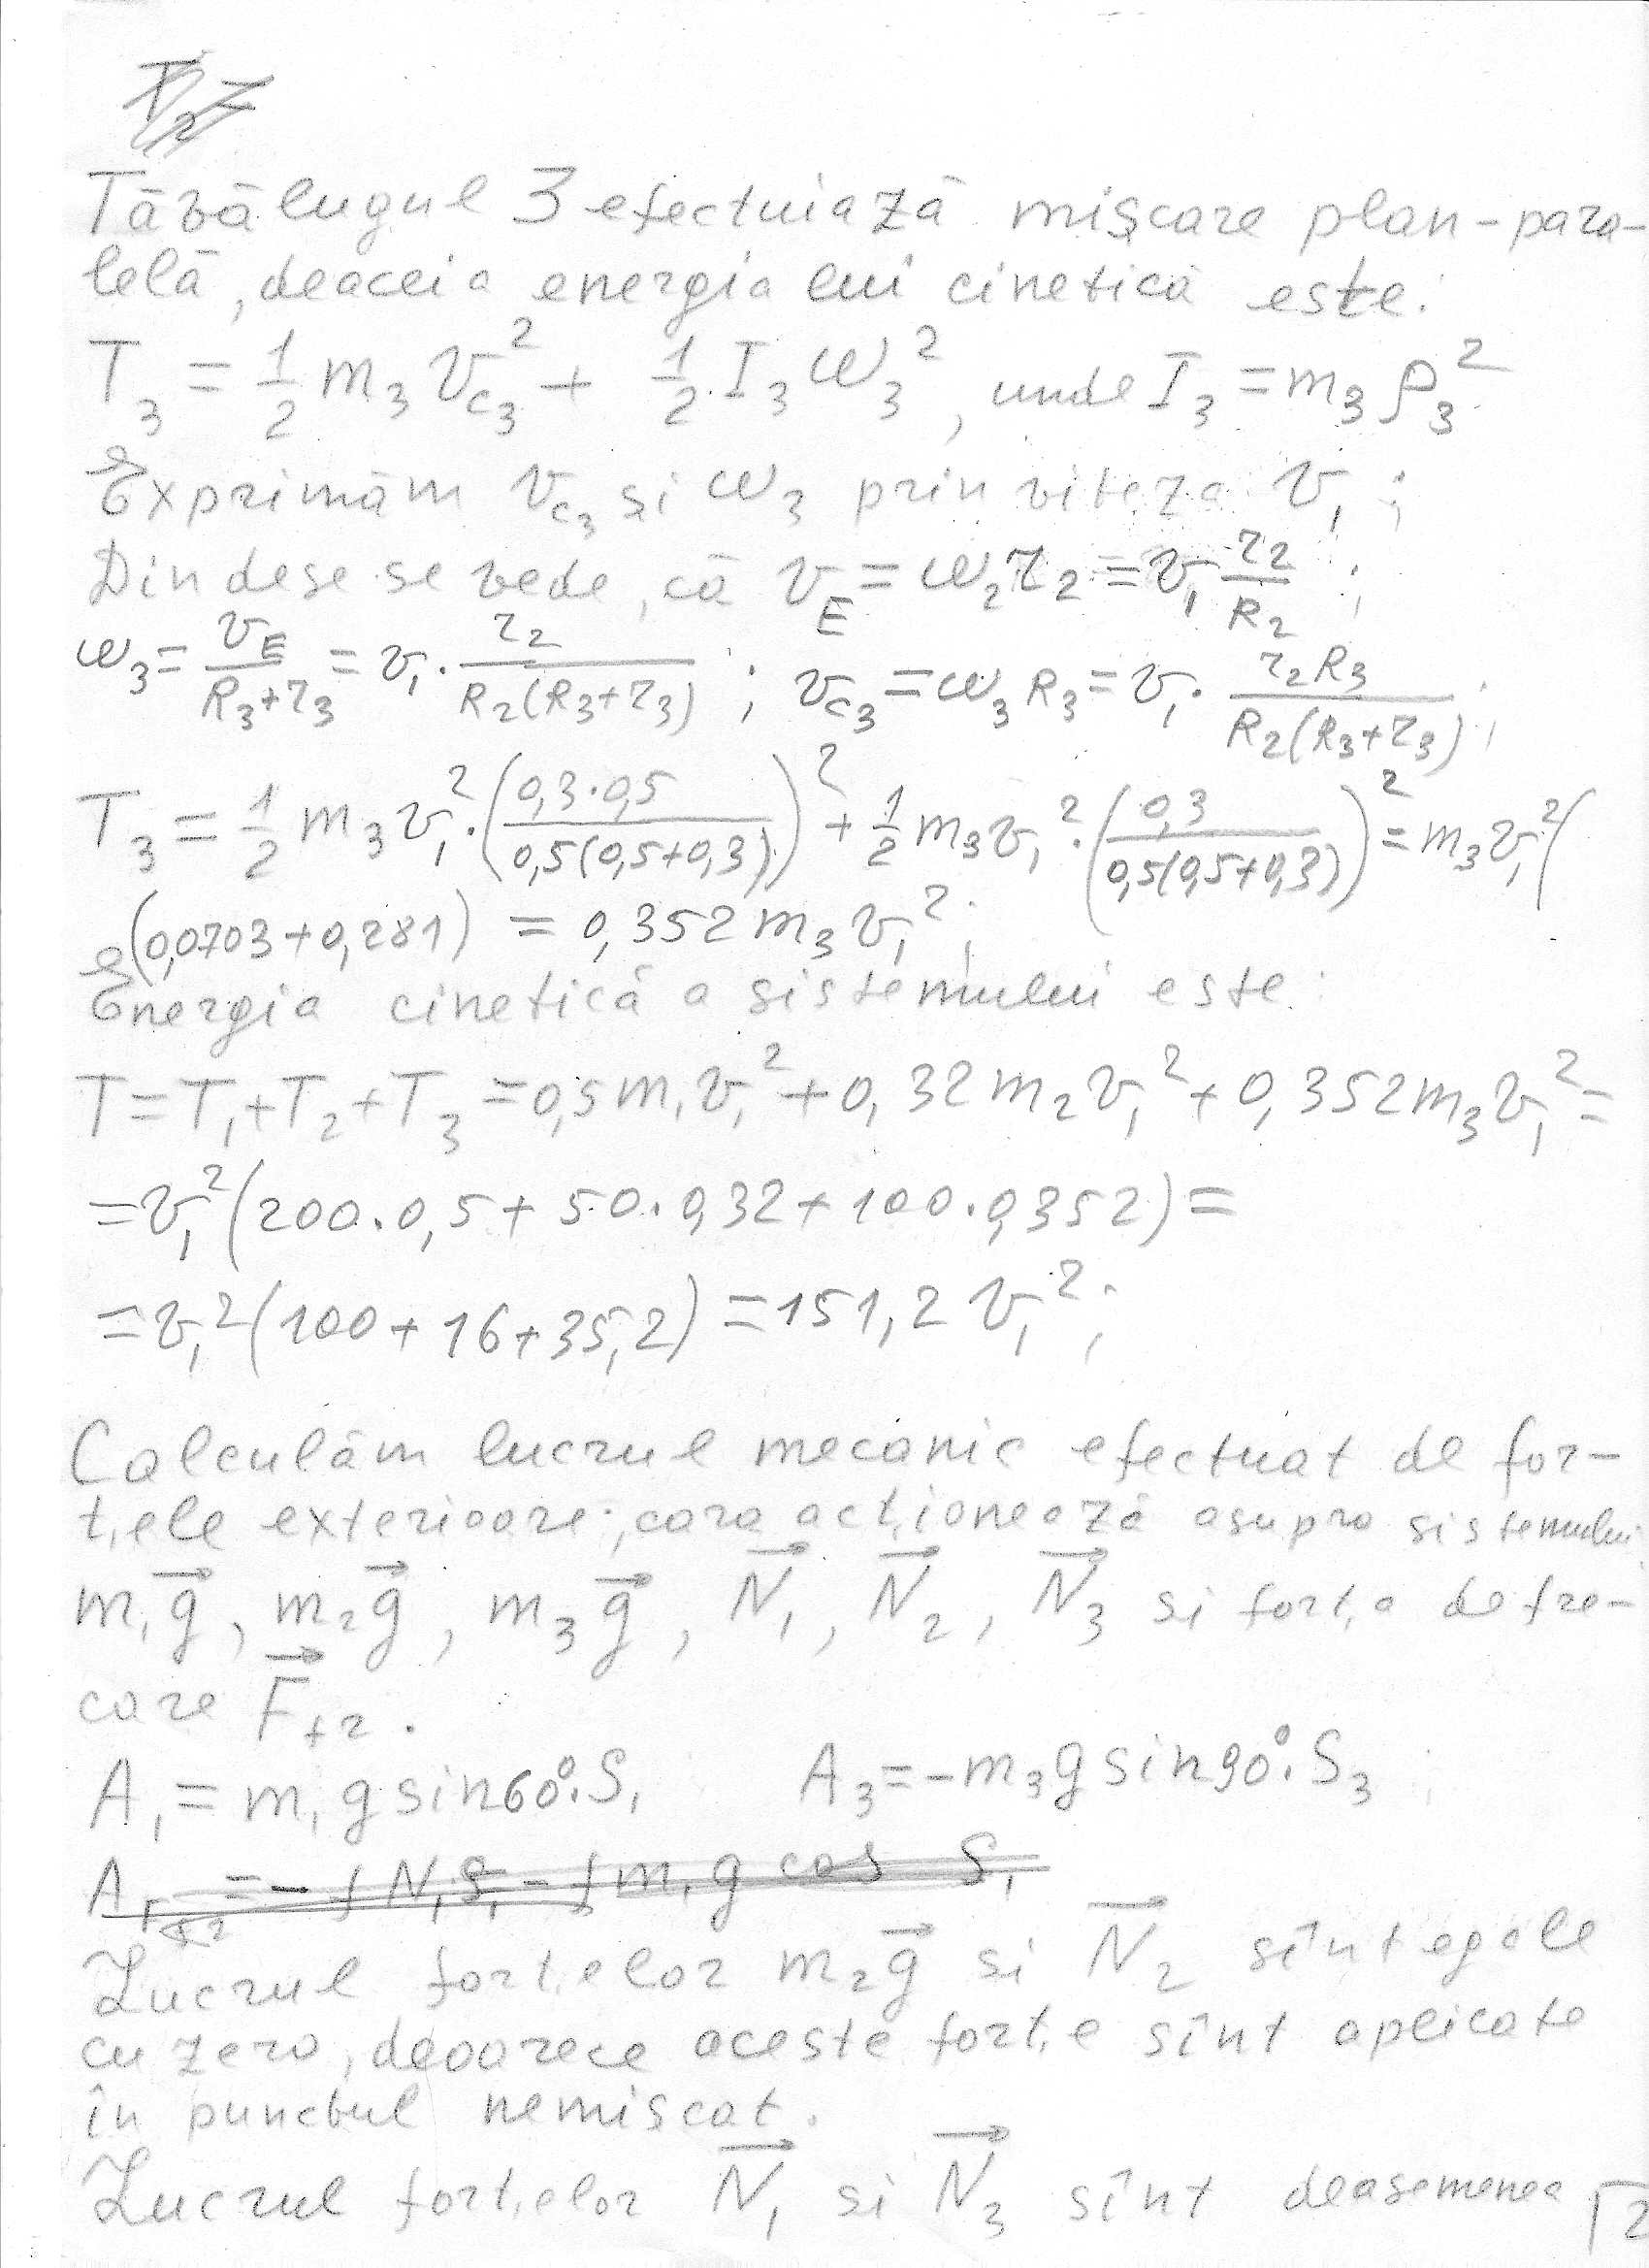 Tăvălugul 3 efectuiază mișcare plan-para-
lelă, deaceia energia lui cinetică este:
T₃ = 1/2 m₃ v_{c₃}² + 1/2 I₃ ω₃², unde I₃ = m₃ ρ₃²
Exprimăm v_{c₃} și ω₃ prin viteza v₁;
Din dese se vede, că v_E = ω₂ r₂ = v₁ r₂/R₂;
ω₃ = v_E/(R₃+r₃) = v₁ · r₂/(R₂(R₃+r₃)); v_{c₃} = ω₃ R₃ = v₁ · r₂R₃/(R₂(R₃+r₃));
T₃ = 1/2 m₃ v₁² · (0,3·0,5/(0,5(0,5+0,3)))² + 1/2 m₃ v₁² · (0,3/(0,5(0,5+0,3)))² = m₃ v₁² (
(0,0703+0,281) = 0,352 m₃ v₁²;
Energia cinetică a sistemului este:
T = T₁+T₂+T₃ = 0,5 m₁ v₁² + 0,32 m₂ v₁² + 0,352 m₃ v₁² =
= v₁² (200·0,5 + 50·0,32 + 100·0,352) =
= v₁² (100 + 16 + 35,2) = 151,2 v₁²;
Calculăm lucrul mecanic efectuat de for-
țele exterioare, cara acționează asupra sistemului
m₁g⃗, m₂g⃗, m₃g⃗, N⃗₁, N⃗₂, N⃗₃ si forța de fre-
care F⃗_{fr}.
A₁ = m₁ g sin60°·S₁ A₃ = -m₃ g sin90°·S₃
Lucrul forțelor m₂g⃗ si N⃗₂ sînt egale
cu zero, deoarece aceste forțe sînt aplicate
în punctul nemiscat.
Lucrul forțelor N⃗₁ si N⃗₃ sînt deasemenea